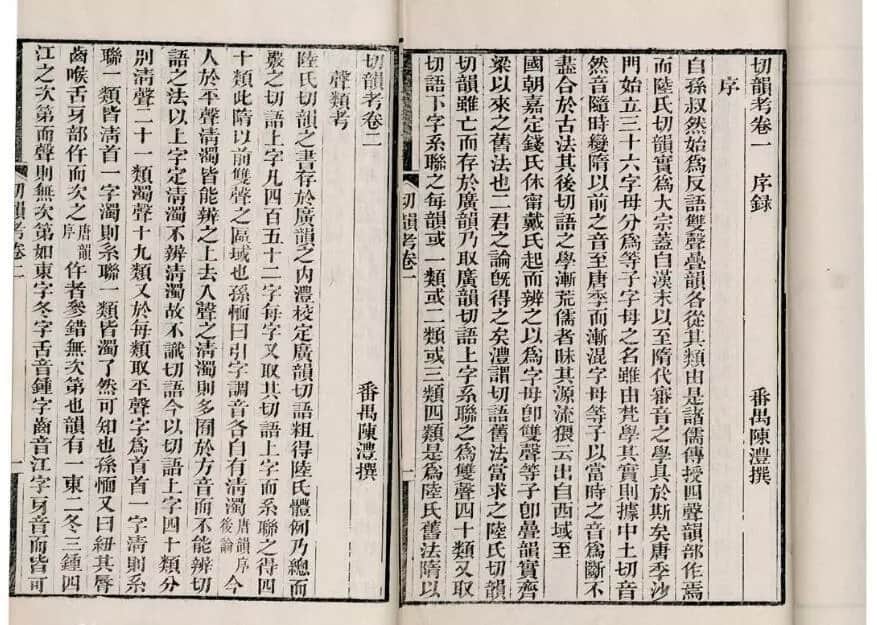 切韻考卷一 序録 番禺陳澧撰
序
自孫叔然始爲反語雙聲疊韻各從其類由是諸儒傳授四聲韻部作焉
而陸氏切韻實爲大宗蓋自漢末以至隋代審音之學具於斯矣唐季沙
門始立三十六字母分爲等子字母之名雖由梵學其實則據中土切音
然音隨時變隋以前之音至唐季而漸混字母等子以當時之音爲斷不
盡合於古法其後切語之學漸荒儒者昧其源流猥云出自西域至
國朝嘉定錢氏休甯戴氏起而辨之以爲字母卽雙聲等子卽疊韻實齊
梁以來之舊法也二君之論旣得之矣澧謂切語舊法當求之陸氏切韻
切韻雖亡而存於廣韻乃取廣韻切語上字系聯之爲雙聲四十類又取
切語下字系聯之每韻或一類或二類或三類四類是爲陸氏舊法隋以
切韻考卷一
一
切韻考卷二 番禺陳澧撰
聲類考
陸氏切韻之書存於廣韻之內澧校定廣韻切語粗得陸氏體例乃總而
覈之切語上字凡四百五十二字每字又取其切語上字而系聯之得四
十類此隋以前雙聲之區域也孫愐曰引字調音各自有清濁唐韻序後論今
人於平聲清濁皆能辨之上去入聲之清濁則多囿於方音而不能辨切
語之法以上字定清濁不辨清濁故不識切語今以切語上字四十類分
別清聲二十一類濁聲十九類又於每類取平聲字爲首首一字清則系
聯一類皆清首一字濁則系聯一類皆濁了然可知也孫愐又曰紐其脣
齒喉舌牙部仵而次之唐韻序仵者參錯無次第也韻有一東二冬三鍾四
江之次第而聲則無次第如東字冬字舌音鍾字齒音江字牙音而皆可
切韻考卷二
一